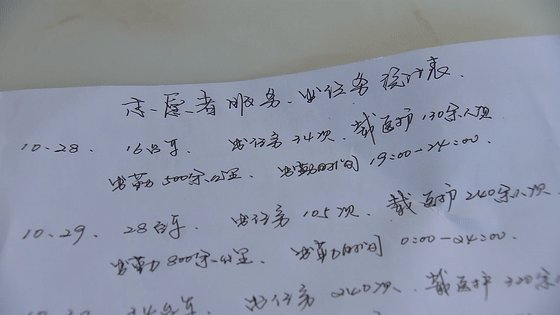 志愿者服务、出任务统计表.
10.28. 16台车. 出任务34次. 载医护130余人次
出勤500余公里. 出勤时间 19:00-24:00
10.29. 28台车. 出任务105次. 载医护240余人次
出勤800余公里. 出勤时间 0:00-24:00.
34台车 出任务240次. 载医护320余